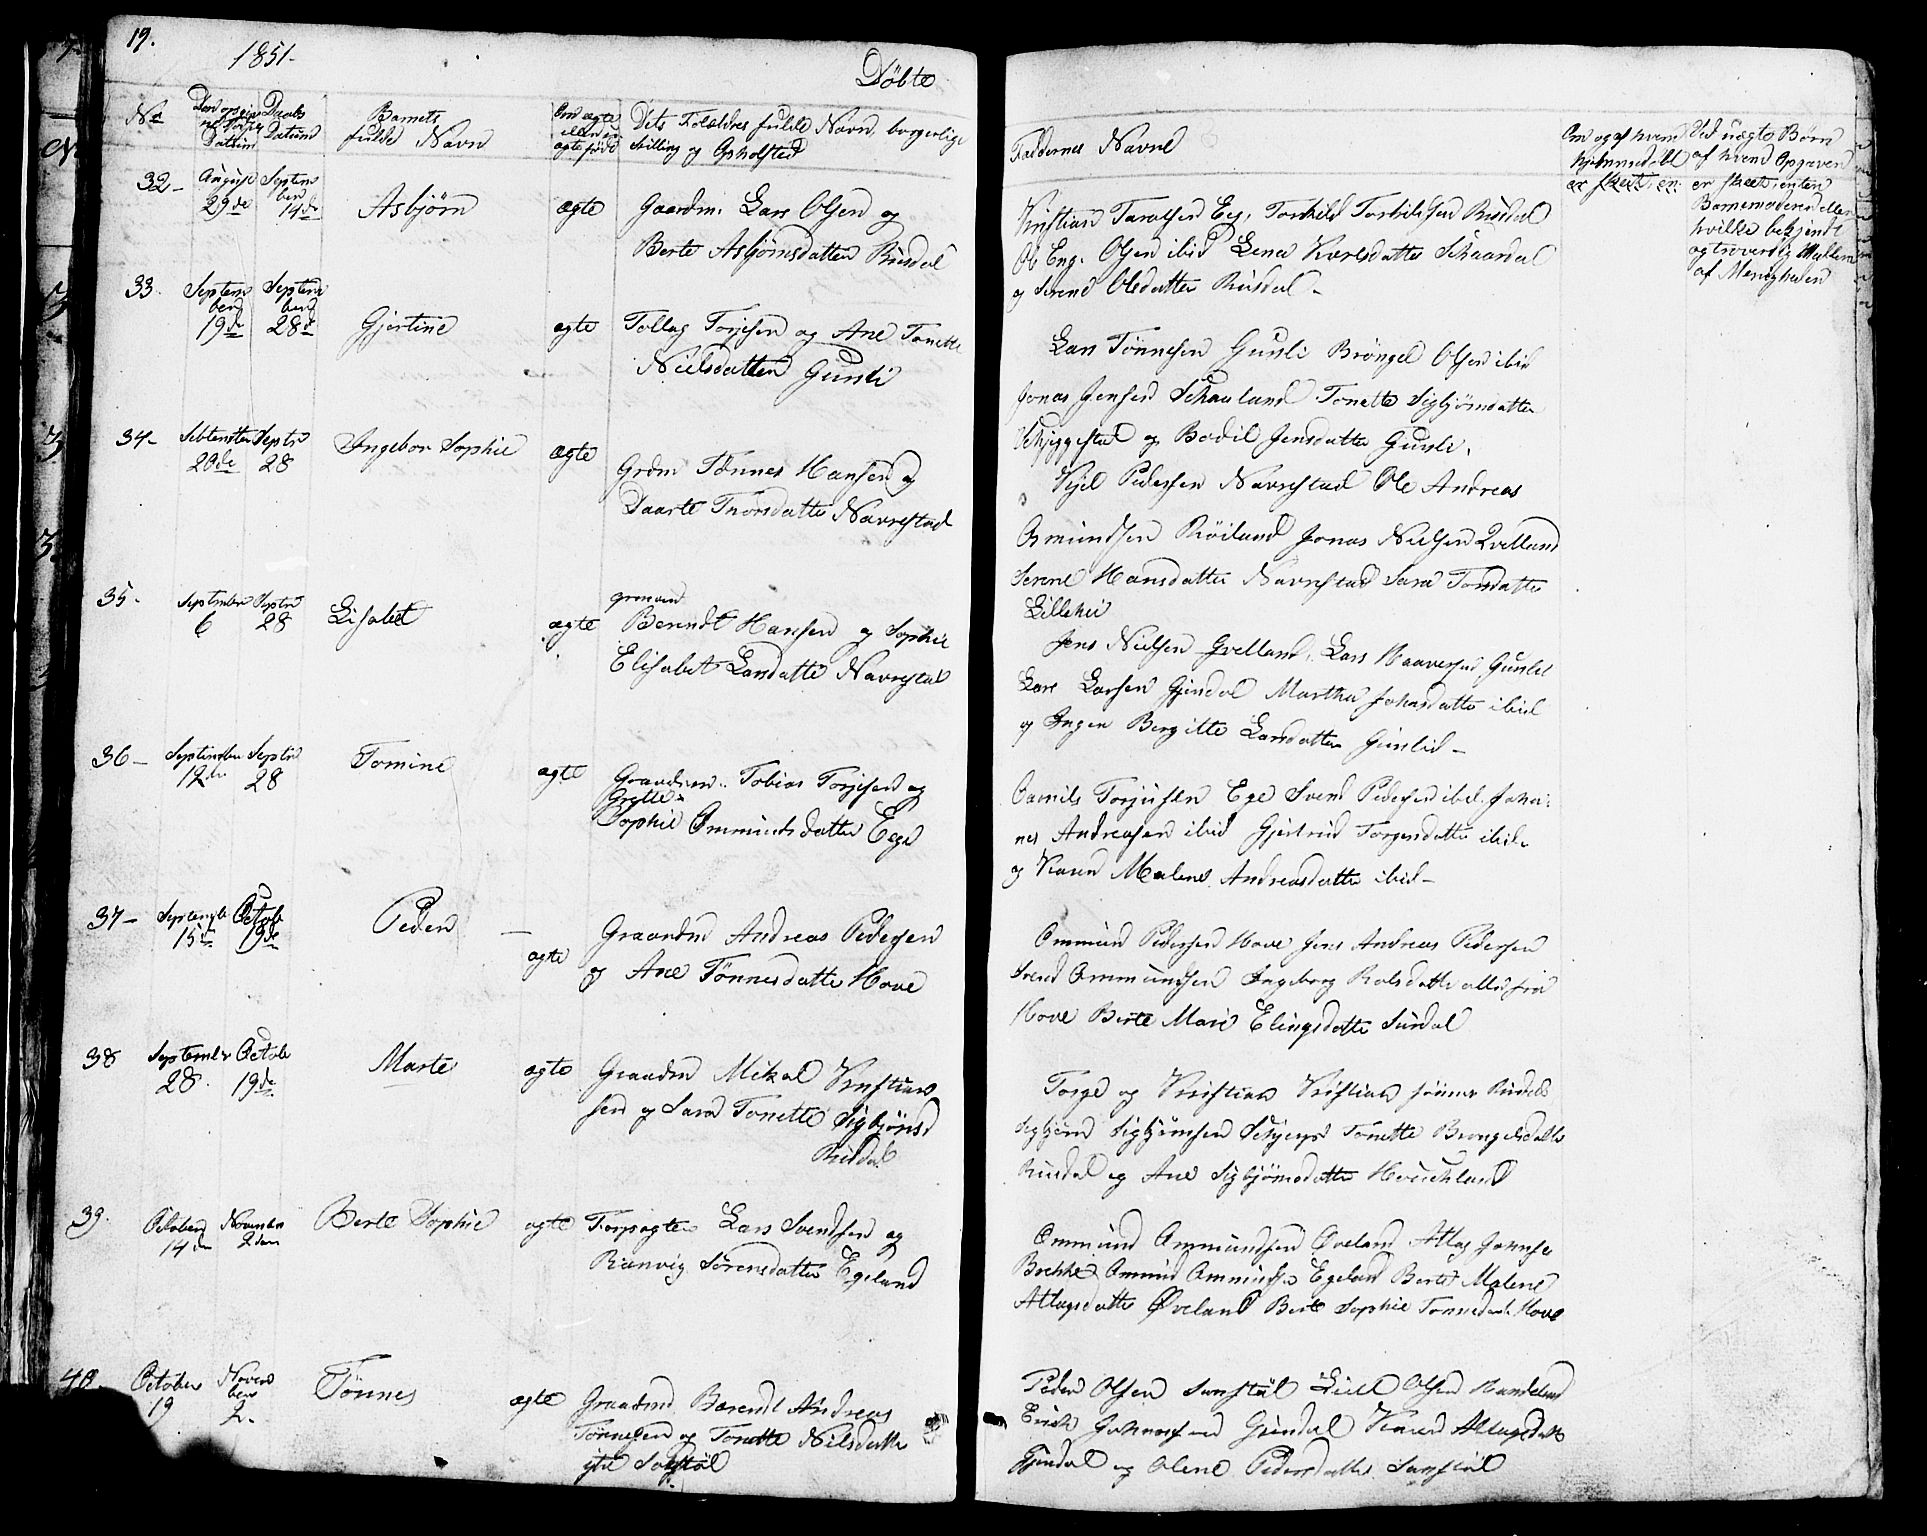 19.
1851.
Døbte
No
Datum
Daabs
Datum
Barnets
fulde Navn
Om ægte
eller u-
ægte føde
Dets Forældres fulde Navn, borgerlige
Stilling og Opholdsted
Faddernes Navne
Om og af hvem
hjemmedåb
er skeet, en
Ved uægte Børn
af hvem Opgaven
er skeet, enten
Barnemoderen eller
hvilke bekjendt
og troværdig Mellem
af Menigheden
32-
August
29de
Septem
ber
14de
Asbjørn
ægte
Gaardm. Lars Olsen og
Berte Asbjørnsdatter Rusdal
Kristian Taralsen Eg, Torkild Torkildsen Rusdal
Ole Eng. Olsen ibid Lena Karlsdatter Skaardal
og Serene Olsdatter Rusdal -
33.
Septem
ber
19de
Septem
ber
28de
Gjertine
ægte
Tollag Torjesen og Ane Tonette
Nielsdatter Gursli
Lars Tønnesen Gursli Brøngel Olsen ibid
Jonas Jensen Skauland Tonette Sigbjørnsdatter
Skjeggestad og Bodil Jensdatter Gursli.
34-
20de
Septr
28
Ingebor Sophie
ægte
Grdm Tønnes Hansen og
Daarte Thorsdatter Navrestad
Kjel Pedersen Navrestad Ole Andreas
Osmundsen Røiland Jonas Nielsen Qvelland
Serene Hansdatter Navrestad Sara Torsdatter
Lillehei
35.
September
6
Septr
28
Lisabet
ægte
Berendt Hansen og Sophie
Elisabet Larsdatter Navrestad
Jens Nielsen Qvelland, Lars Haaversen Gursli
Lars Larsen Gjindal Martha Johnsdatter ibid
og Inger Bergitte Larsdatter Gursli -
36-
September
12te
Septr
28
Tomine
ægte
Graadm.. Tobias Torjesen og
Grette
Sophie Ommundsdatter Ege
Torjusen Ege Svend Pedersen ibid. Johan-
nes Andreasen ibid Gjertrud Torgersdatter ibid
og Karen Malene Andreasdatter ibid -
37-
September
15de
Octob
19de
Peder
-
ægte
Graardm Andreas Pedersen
og Ane Tønnesdatter Hove
Ommund Pedersen Hove Jens Andreas Pedersen
Svend Ommundsen Ingeborg Rolsdatter alle fra
Hove Berte Mari Elingsdatter Surdal
38
September
28.
Octob
19de
Marte
ægte
Graadm Mikal Kristian
sen og Sara Tonette Sigbjørnsd
Rusdal
Torge og Kristian Kristian sønner Rusdal
Sigbjørn Sigbjørnsen Tonette Brongelsdatter
Rusdal og Ane Sigbjørnsdatter Houkland
39.
October
14de
Novem
2den
Berte Sophie
ægte
Lars Svendsen og
Ranvig Sørensdatter Egeland
Ommund Ommundsen Øveland Atlag Johnse
Bakke Ommund Ommundsen Egeland Berte Malene
Atlagsdatter Øveland Berte Sophie Tønnesdatt Hove
40.
October
19
Novem
ber
2.
Tønnes
ægte
Graadmd Berendt Andreas
Tønnesen og Tonette Nilsdatter
Peder Olsen Sanstøl Lill Olsen Handeland
Erick Johannesen Gjindal Karen Atlagsdatt
Gjindal og Olene Pedersdatter Sanstøl